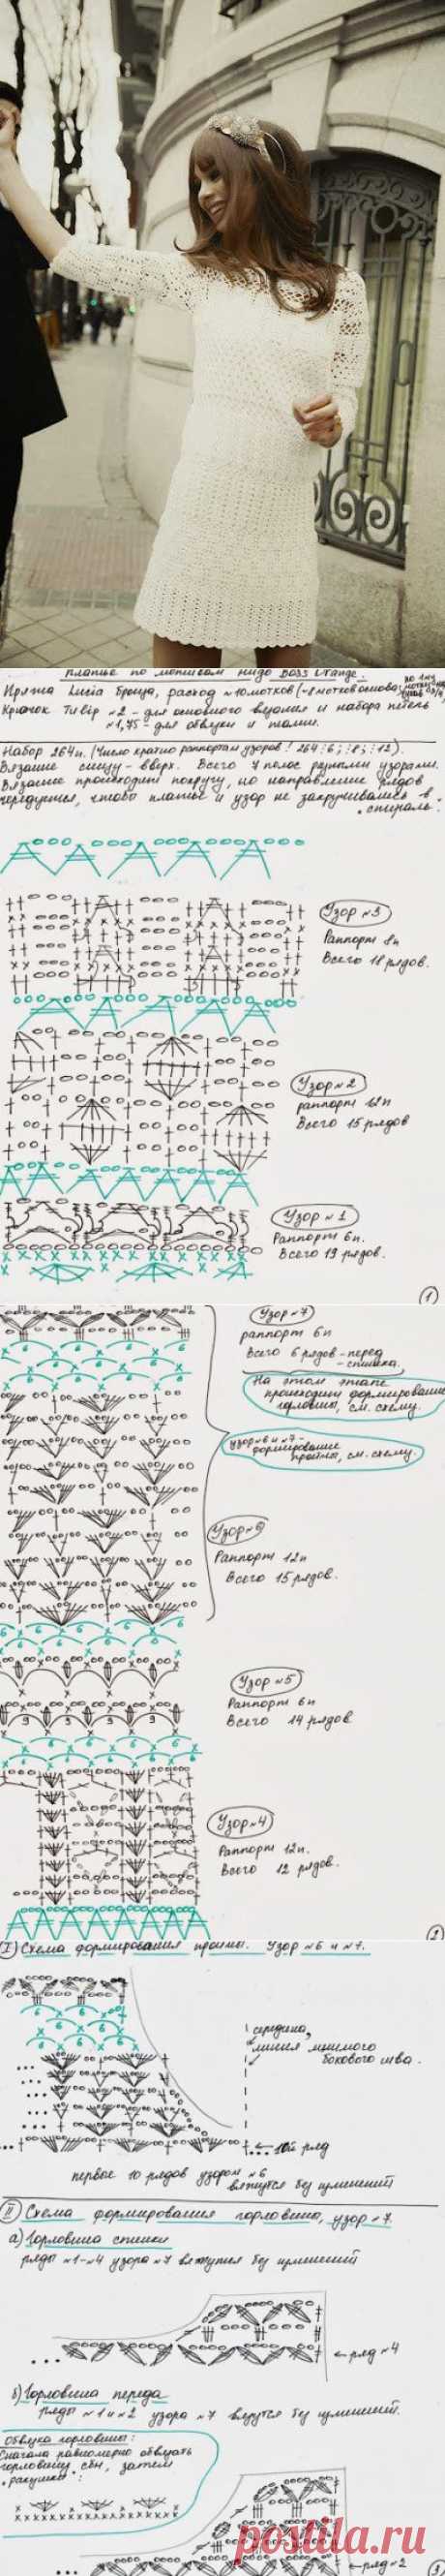 Платье по мотивам Hugo Boss Orange.
Пряжа Lucia Троица, расход ~10 мотков (~8 мотков основа;
Крючок Tulip №2 - для основного вязания и набора петель
№1,75 - для обвязки и талии.
Набор 264 п. (Число кратно раппортам узоров! 264:6; :8; :12).
Вязание снизу - вверх. Всего 7 полос разными узорами.
Вязание происходит по кругу, но направление рядов
чередуется, чтобы платье и узор не закручивались в
спираль.
Узор №3
Раппорт 8п
Всего 18 рядов.
Узор №2
раппорт 12п
Всего 15 рядов
Узор №1
Раппорт 6п.
Всего 19 рядов.
1
Узор №7
раппорт 6п
Всего 6 рядов - перед
- спинка.
На этом этапе
происходит формирование
горловины, см. схему.
узор №6 и №7 -
формирование
проймы, см. схему.
Узор №6
Раппорт 12п
Всего 15 рядов.
Узор №5
Раппорт 6п
Всего 14 рядов
Узор №4
Раппорт 12п.
Всего 12 рядов.
2
I) Схема формирования проймы. Узор №6 и №7.
середина,
линия мнимого
бокового шва.
10й ряд
первые 10 рядов узором №6
вяжутся без изменений
II Схема формирования горловины, узор №7.
а) Горловина спинки
ряды №1-№4 узора №7 вяжутся без изменений
ряд №4
б) Горловина переда
ряды №1 и №2 узора №7 вяжутся без изменений.
Обвязка горловины:
Сначала равномерно обвязать
горловину сбн, затем
"ракушки":
ряд №2
postila.ru